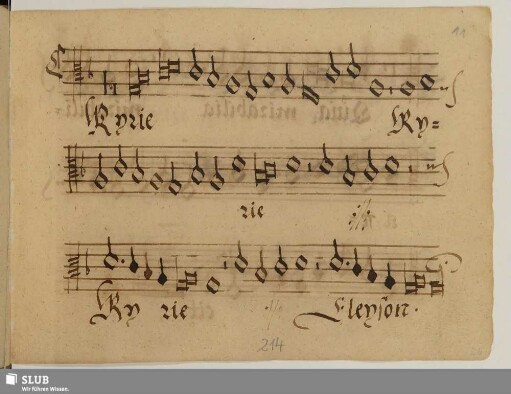 11
Kyrie Ky=
rie
Ky rie Eleyson.
214
SLUB
Wir führen Wissen.